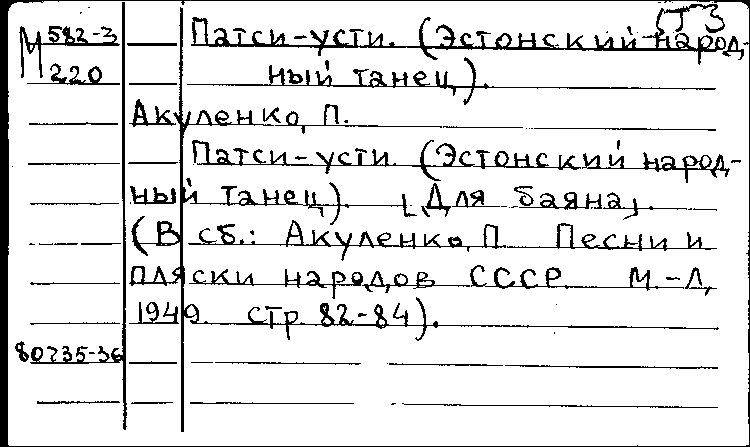 СТ 3
М 582-3 Патси-усти. (Эстонский народ-
220 ный танец).
Акуленко, П.
Патси-усти. (Эстонский народ-
ный танец). [Для баяна].
(В сб.: Акуленко, П. Песни и
пляски народов СССР. М.-Л,
1949. стр. 82-84).
80735-36